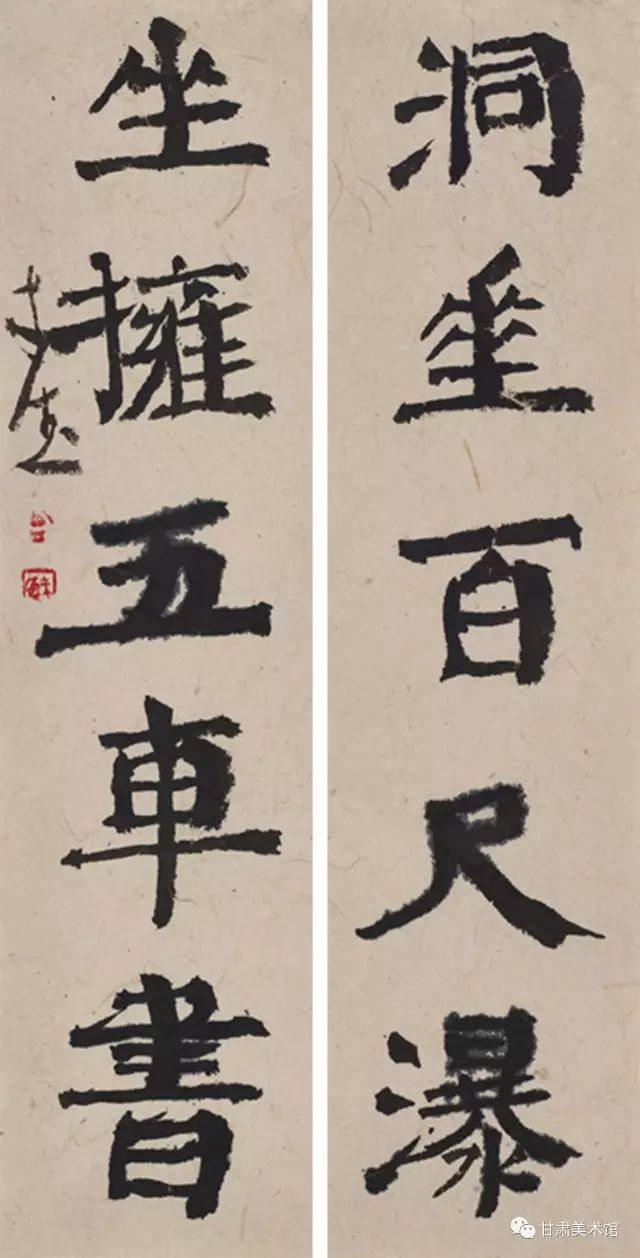 洞垂百尺瀑
坐擁五車書
甘肃美术馆